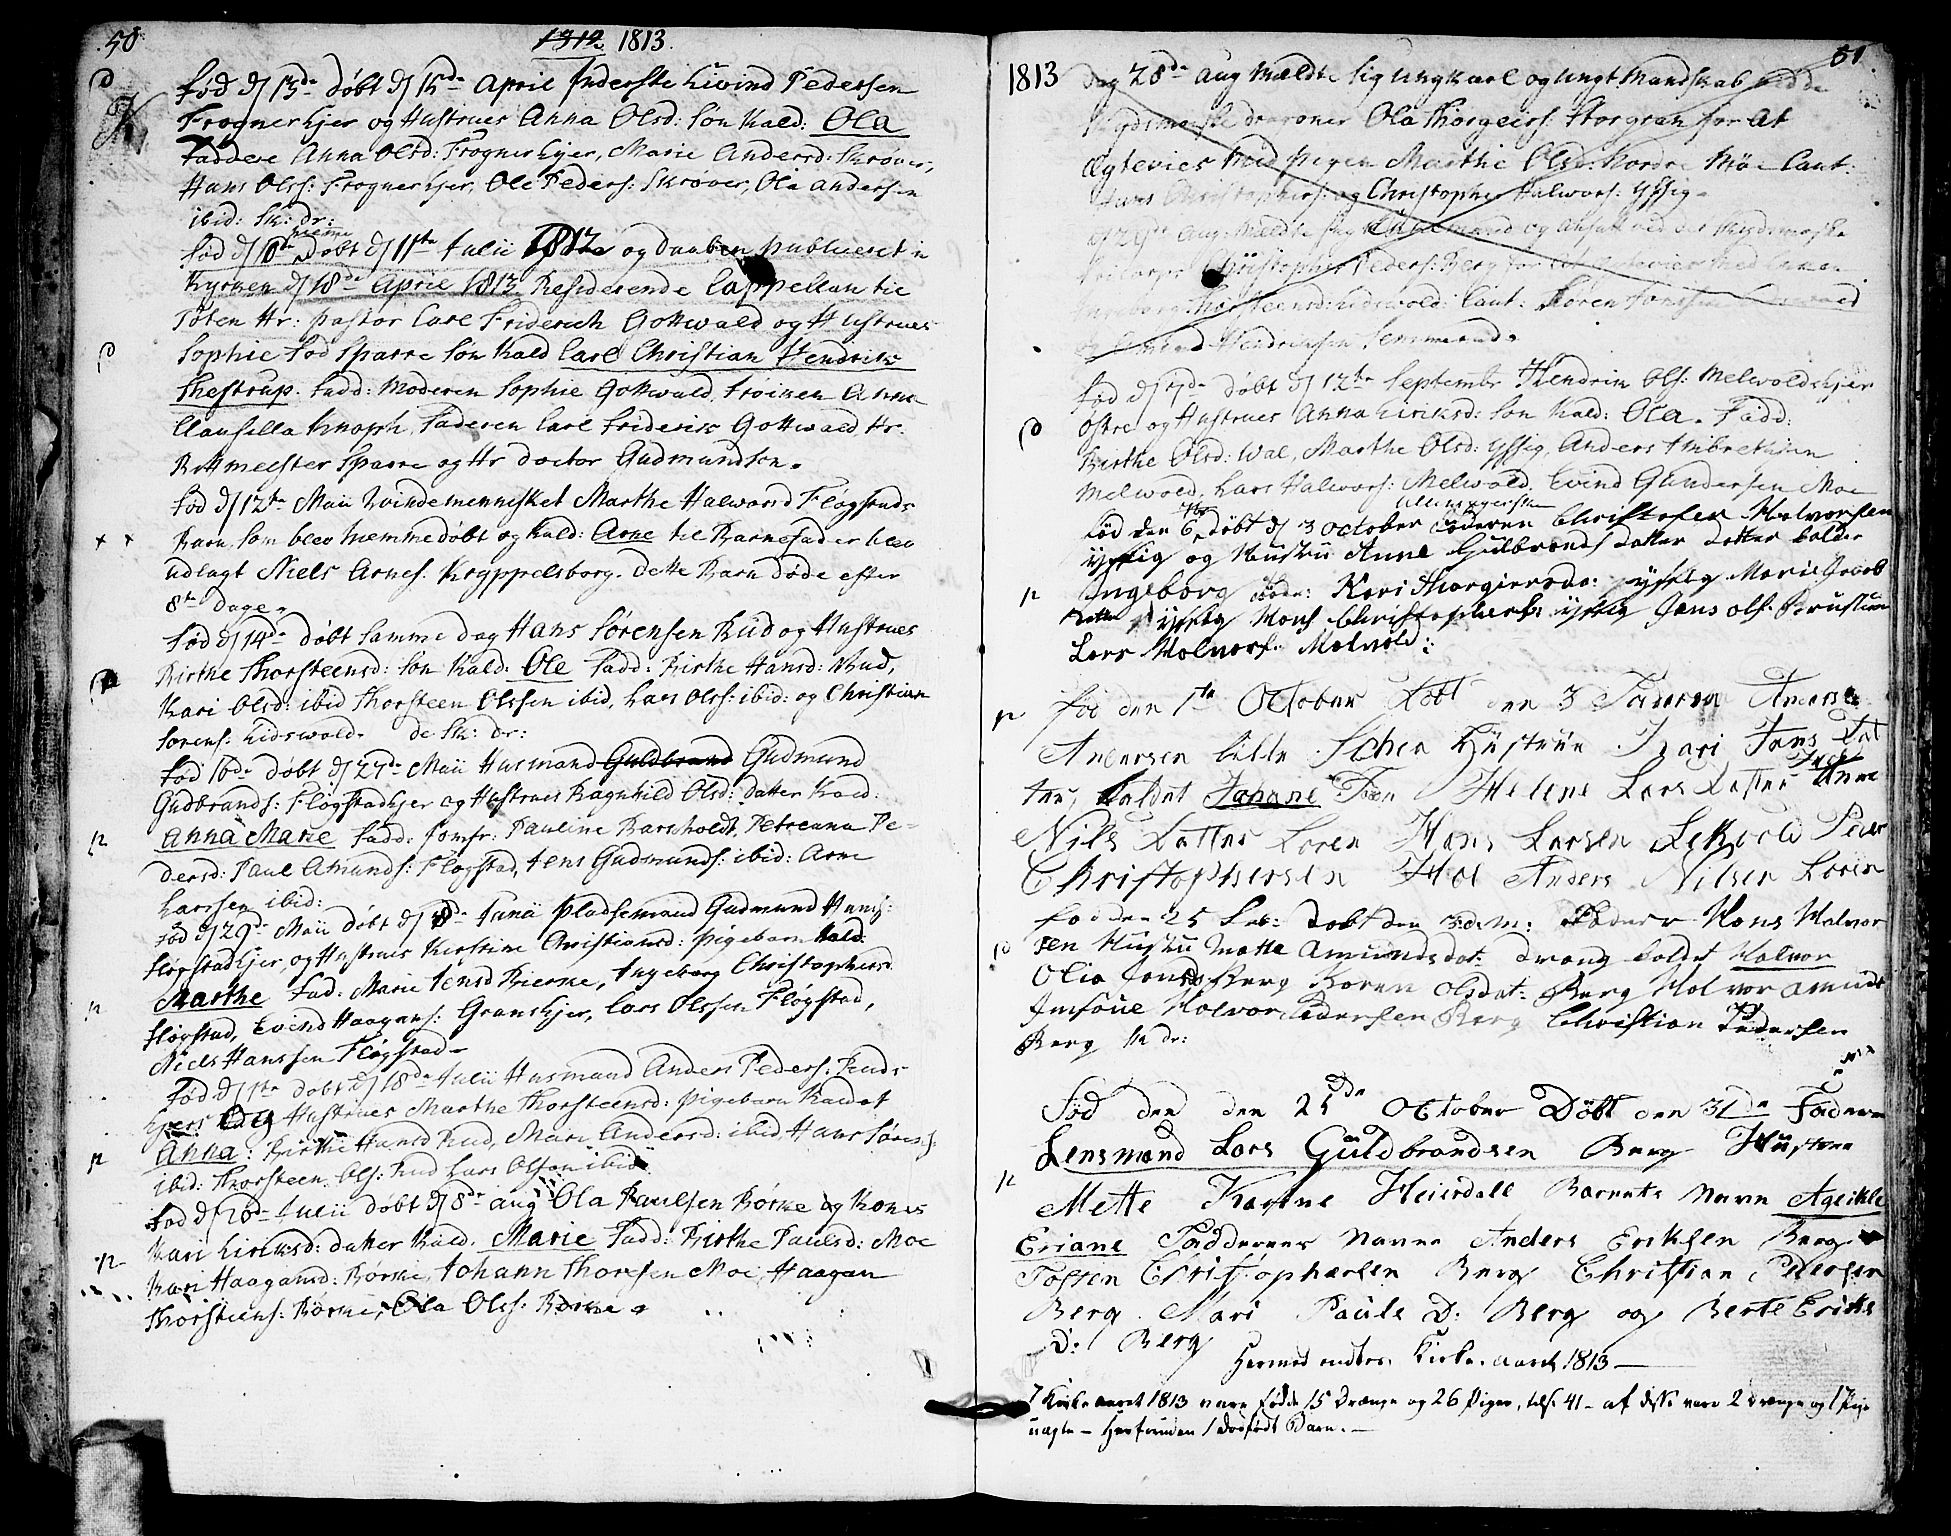 50
1812 1813.
Fød d 13de døbt d 15de April Inderste Eivind Pedersen
Frognerhjer og Hustrues Anna Olsd: Søn kald: Ola
Faddere Anna Olsd: Frognerhjer, Marie Andersd: Skrøver,
Hans Olss: Frognerhjer, Ole Peders: Skrøver, Ola Andersen
ibid: Sk: dr:
hieme
Fød d 10de døbt d 11te Julii 1812 og daaben publiceret i
Kyrken d 18de April 1813 Residerende Cappellan til
Toten Hr: Pastor Carl Friderich Gottwald og Hustrues
Sophie fød Sparre Søn kald Carl Christian Hendrik
Thestrup. Fadd: Moderen Sophie Gottwald, Frøiken Anna
Clausilla Knoph, Faderen Carl Friderik Gottwald Hr.
Rittmeester Sparre og Hr doctor Gudmundson.
Fød d 12te Maii Qvindemennesket Marthe Halword Fløgstads
Barn, som blev hiemmedøbt og kald: Arne til Barnefader blev
udlagt Niels Arnes. Kryppelsborg. Dette Barn døde efter
8te dage.
Fød d 14de døbt samme dag Hans Sørensen Rud og Hustrues
Birthe Thorsteensd: Søn kald: Ole Fadd: Birthe Hansd: Rud,
Kari Olsd: ibid Thorsteen Olssen ibid, Lars Olss: ibid: og Christian
Sørens: Eidswold. de Sk: dr:
Fød 16de døbt d 27de Maii Husmand Guldbrand Gudmund
Gudbrands: Fløgstadhjer og Hustrues Ragnhild Olsd: datter kald:
Anna Marie Fadd: Jomfr: Pauline Barnholdt, Petrenna Pe-
dersd: Paul Amunds: Fløgstad, Jens Gudmunds: ibid: Arne
Larssen ibid:
Fød d 29de Maii døbt d 8de Junii Pladsemand Gudmund Hans:
Fløgstadhjer, og Hustrues Kierstine Christiansd: pigebarn kald:
Marthe Fad: Marie Jensd Bierke, Ingeborg Christophersd
Fløgstad, Evind Haagens: Granshjer, Lars Olssen Fløgstad,
Niels Hanssen Fløgstad
Fød d 1te døbt d 18de Julii Husmand Anders Peders: Ruds
hjers Edg Hustrues Marthe Thorsteensd: pigebarn kaldet
Anna: Birthe Hansd Rud, Mari Andersd: ibid, Hans Sørens:
ibid: Thorsteen Ols: Rud Lars Olsen ibid
Fød d 20de Julii døbt d 8de aug Ola Paulsen Børke og Kones
Kari Eiriksd: datter kald. Marie Fadd: Birthe Paulsd: Moe
Kari Haagansd: Børke, Johann Thoresen Moe, Haagan
Thorsteens: Børke, Ola Olss: Børke
51
1813 Dag 28de Aug Meldte sig Ungkarl og ungt Mandskab ved de
Dragoner Ola Thorgeirs: Storgran for at
Ægtevies med pigen Marthe Olsd: Nordre Moe Caut:
Hans Christophers: og Christopher Halwors: Yssig
d 29de Aug: Meldte sig Enkemand og
Christopher Peders: Berg for at Ægtevies med Enken
Ingeborg Thorsteensd: Eidswold: Caut: Søren Jonssen Eidswold
Hendriksen Semmerud.
Fød d 7de døbt d 12te September Hendrik Ols: Melwoldshjer
østre og Hustrues Anna Eiriksd: Søn kald: Ola. Fadd:
Birthe Olsd: Wal, Marthe Olsd: Yssig, Anders Imbretssen
Melwold, Lars Halwors: Melwold, Evind Gundersen Moe
Fød den 6te døbt d 3 October Faderen Christofer Halvorsen
Yssig og Hustru Anne Gulbrands datter datter kaldes
Ingeborg Fadr: Kari Thorgiersdr: Yssig Marie Jacob
datter Yssig Hans Christophers: Yssig Jens Ols:
Lars Halvors: Melvold:
Fød den 1te October Døbt den 3 Faderen Anders
Andersen Lille Schen Hustrue Kari Jans Dat
ter, kaldet Johane Fad Helene Lars Datter Anne
Nils Datter Loren Hans Larsen Peder
Christophersen Hol Anders Nilsen Loren
Fød den 25 Seb: døbt den 3 d. M: Fader Hans Halvor
sen Hustru Matte Amundsdat: dreng kaldet Halvor
Olia Jonsd Berg Karen Olsdat: Berg Halvor Amunds
Halvor Pedersen Berg Christian Pedersen
Berg Sk dr:
Fød den den 25de October Døbt den 31de Faderen
Lensmand Lars Guldbrandsen Berg Hustrue
Mette Katrine Heierdall Barnets Navn Ageikke
Eriane Fadderenes Navne Anders Eriksen Berg
Tosten Christophersen Berg Christian Pedersen
Berg Mari Pauls D: Berg og Berte Eriks
D: Berg
Hermed endtes Kirke-aaret 1813
I Kirke-aaret 1813 vare fødde 15 Drænge og 26 Piger, tils. 41 - af disse vare 2 Drænge og 1 Pige
uægte - Herforuden 1 dødfødt Barn.